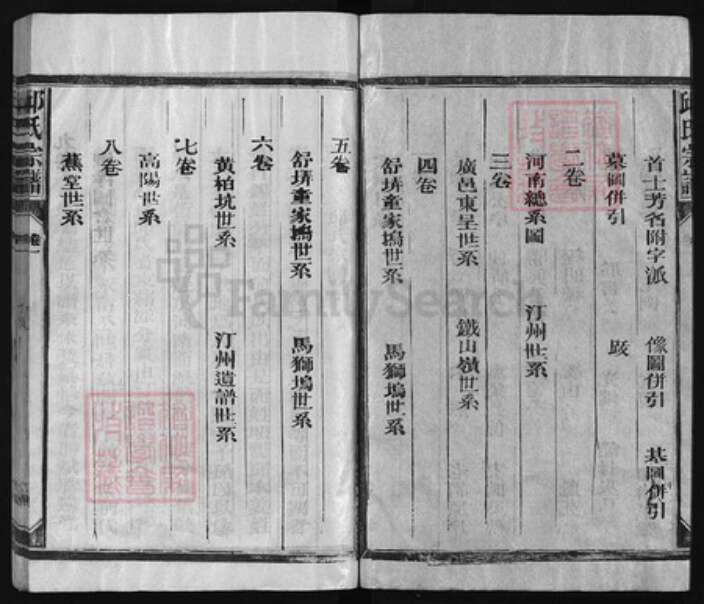 首士芳名附字派 像圖併引 基圖併引
墓圖併引 跋
二卷
河南總系圖 汀州世系
三卷
廣邑東呈世系 鐵山嶺世系
四卷
舒塝童家塢世系 馬獅塢世系
五卷
舒塝童家塢世系 馬獅塢世系
六卷
黃柏坑世系 汀州遺譜世系
七卷
高陽世系
八卷
蕉堂世系
邱氏宗譜 卷一
FamilySearch